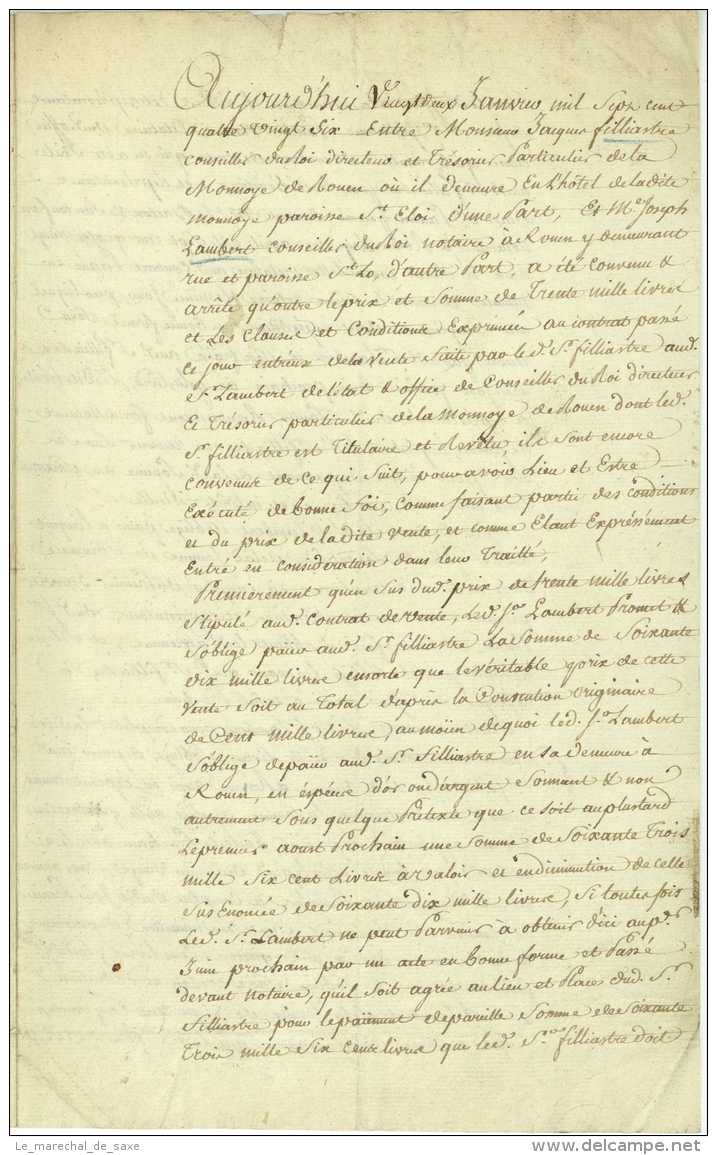 Aujourd'hui Vingt deux Janvier mil Sept cent
quatre Vingt Six Entre Monsieur Jacques filliastre
conseiller du Roi directeur et Trésorier Particulier de la
Monnoye de Rouen où il demeure En l'hôtel de la dite
monnoye paroisse St. Eloi d'une Part, Et Me. Joseph
Lambert conseiller du Roi notaire à Rouen y demeurant
rue et paroisse St. Lo, d'autre Part, a été convenu &
arrêté qu'outre le prix et Somme de Trente mille livres
et Les Clauses et Conditions Exprimées au contrat passé
ce jour entr'eux de la Vente faite par le d. Sr. filliastre aud.
Sr. Lambert de l'état & office de Conseiller du Roi directeur
Et Trésorier particulier de la Monnoye de Rouen dont led.
Sr. filliastre est Titulaire et Revêtu ils sont encore
convenus de ce qui Suit, pour avoir Lieu et Estre
Exécuté de bonne foi, comme faisant partie des conditions
et du prix de la dite vente, et comme Etant Expréssément
Entré en considération dans leur Traitté,
Premièrement qu'en Sus dud. prix de trente mille livres
Stipulé aud. contrat de vente, Led. Sr. Lambert Promet &
S'oblige païer aud. Sr. filliastre La Somme de Soixante
dix mille livres ensorte que le véritable prix de cette
Vente Soit au Total d'après la Convention Originaire
de Cent mille livres, au moïen de quoi led. Sr. Lambert
S'oblige de païer aud. Sr. filliastre en sa demeure à
Rouen, en espèces d'or ou d'argent Sonnant & non
autrement Sous quelque Pretexte que ce soit au plus tard
Le premier aoust Prochain une Somme de Soixante Trois
mille Six cent Livres à valoir et en diminution de celle
Sus Enoncée de Soixante dix mille livres, Si toutes fois
Led. Sr. Lambert ne peut Parvenir à obtenir d'ici au pr.
Juin prochain par un acte en bonne forme et Passé
devant notaire, qu'il Soit agréé au lieu et Place dud. Sr.
filliastre pour le païement de pareille Somme de Soixante
Trois mille Six cents livres que led. Sr. filliastre doit
Le_marechal_de_saxe
delcampe.net